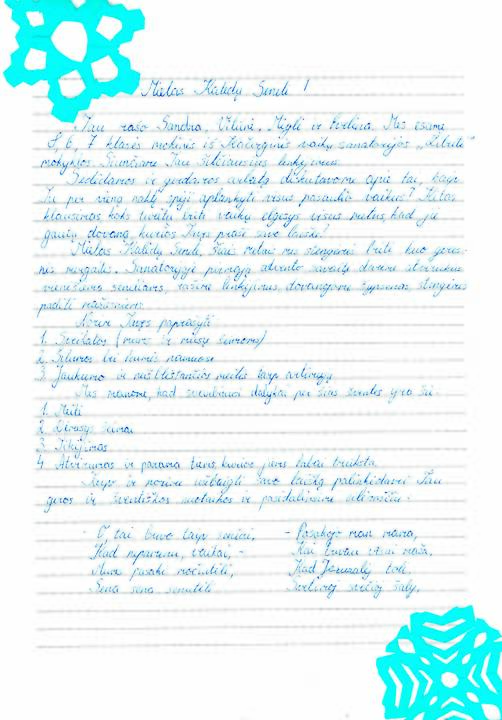 Mielas Kalėdų Seneli!
Tau rašo Sandra, Viltinė, Miglė ir Evelina. Mes esame
5, 6, 7 klasės mokinės iš Kačerginės vaikų sanatorijos „Žibutė"
mokyklos. Siunčiame Tau šilčiausius linkėjimus.
Sėdėdamos ir gerdamos arbatą diskutavome apie tai, kaip
Tu per vieną naktį spėji aplankyti visus pasaulio vaikus? Kitas
klausimas, koks turėtų būti vaikų elgesys visus metus, kad jie
gautų dovaną, kurios Tavęs prašė savo laiške?
Mielas Kalėdų Seneli, šiais metais mes stengėmės būti kuo geres-
nės mergaitės. Sanatorijoje pirmąją advento savaitę darėme atvirukus
vienišiems senukams, rašėme linkėjimus, dovanojome šypsenas, stengėmės
padėti mažesniems.
Norim Tavęs paprašyti
1. Sveikatos (mums ir mūsų šeimoms)
2. Šilumos bei ramybės namuose
3. Jaukumo ir neišblėstančios meilės tarp artimųjų
Mes manome, kad svarbiausi dalykai per šias šventes yra šie:
1. Meilė
2. Dėmesys šeimai
3. Tikėjimas
4. Atvirumas ir parama tiems, kuriems jums labai trūksta.
Taip ir norime užbaigti savo laišką palinkėdami Tau
geros ir šventiškos nuotaikos ir pasidalinsime eilėraščiu.
- O, tai buvo taip seniai,
Kad neparemsi, vaikai, -
Man pasakė močiutė,
Sena sena senutė
- Pasakojo man mama,
Kai buvau visai maža,
Kad Jeruzalėj toli,
Svetimoj svečioj šaly,